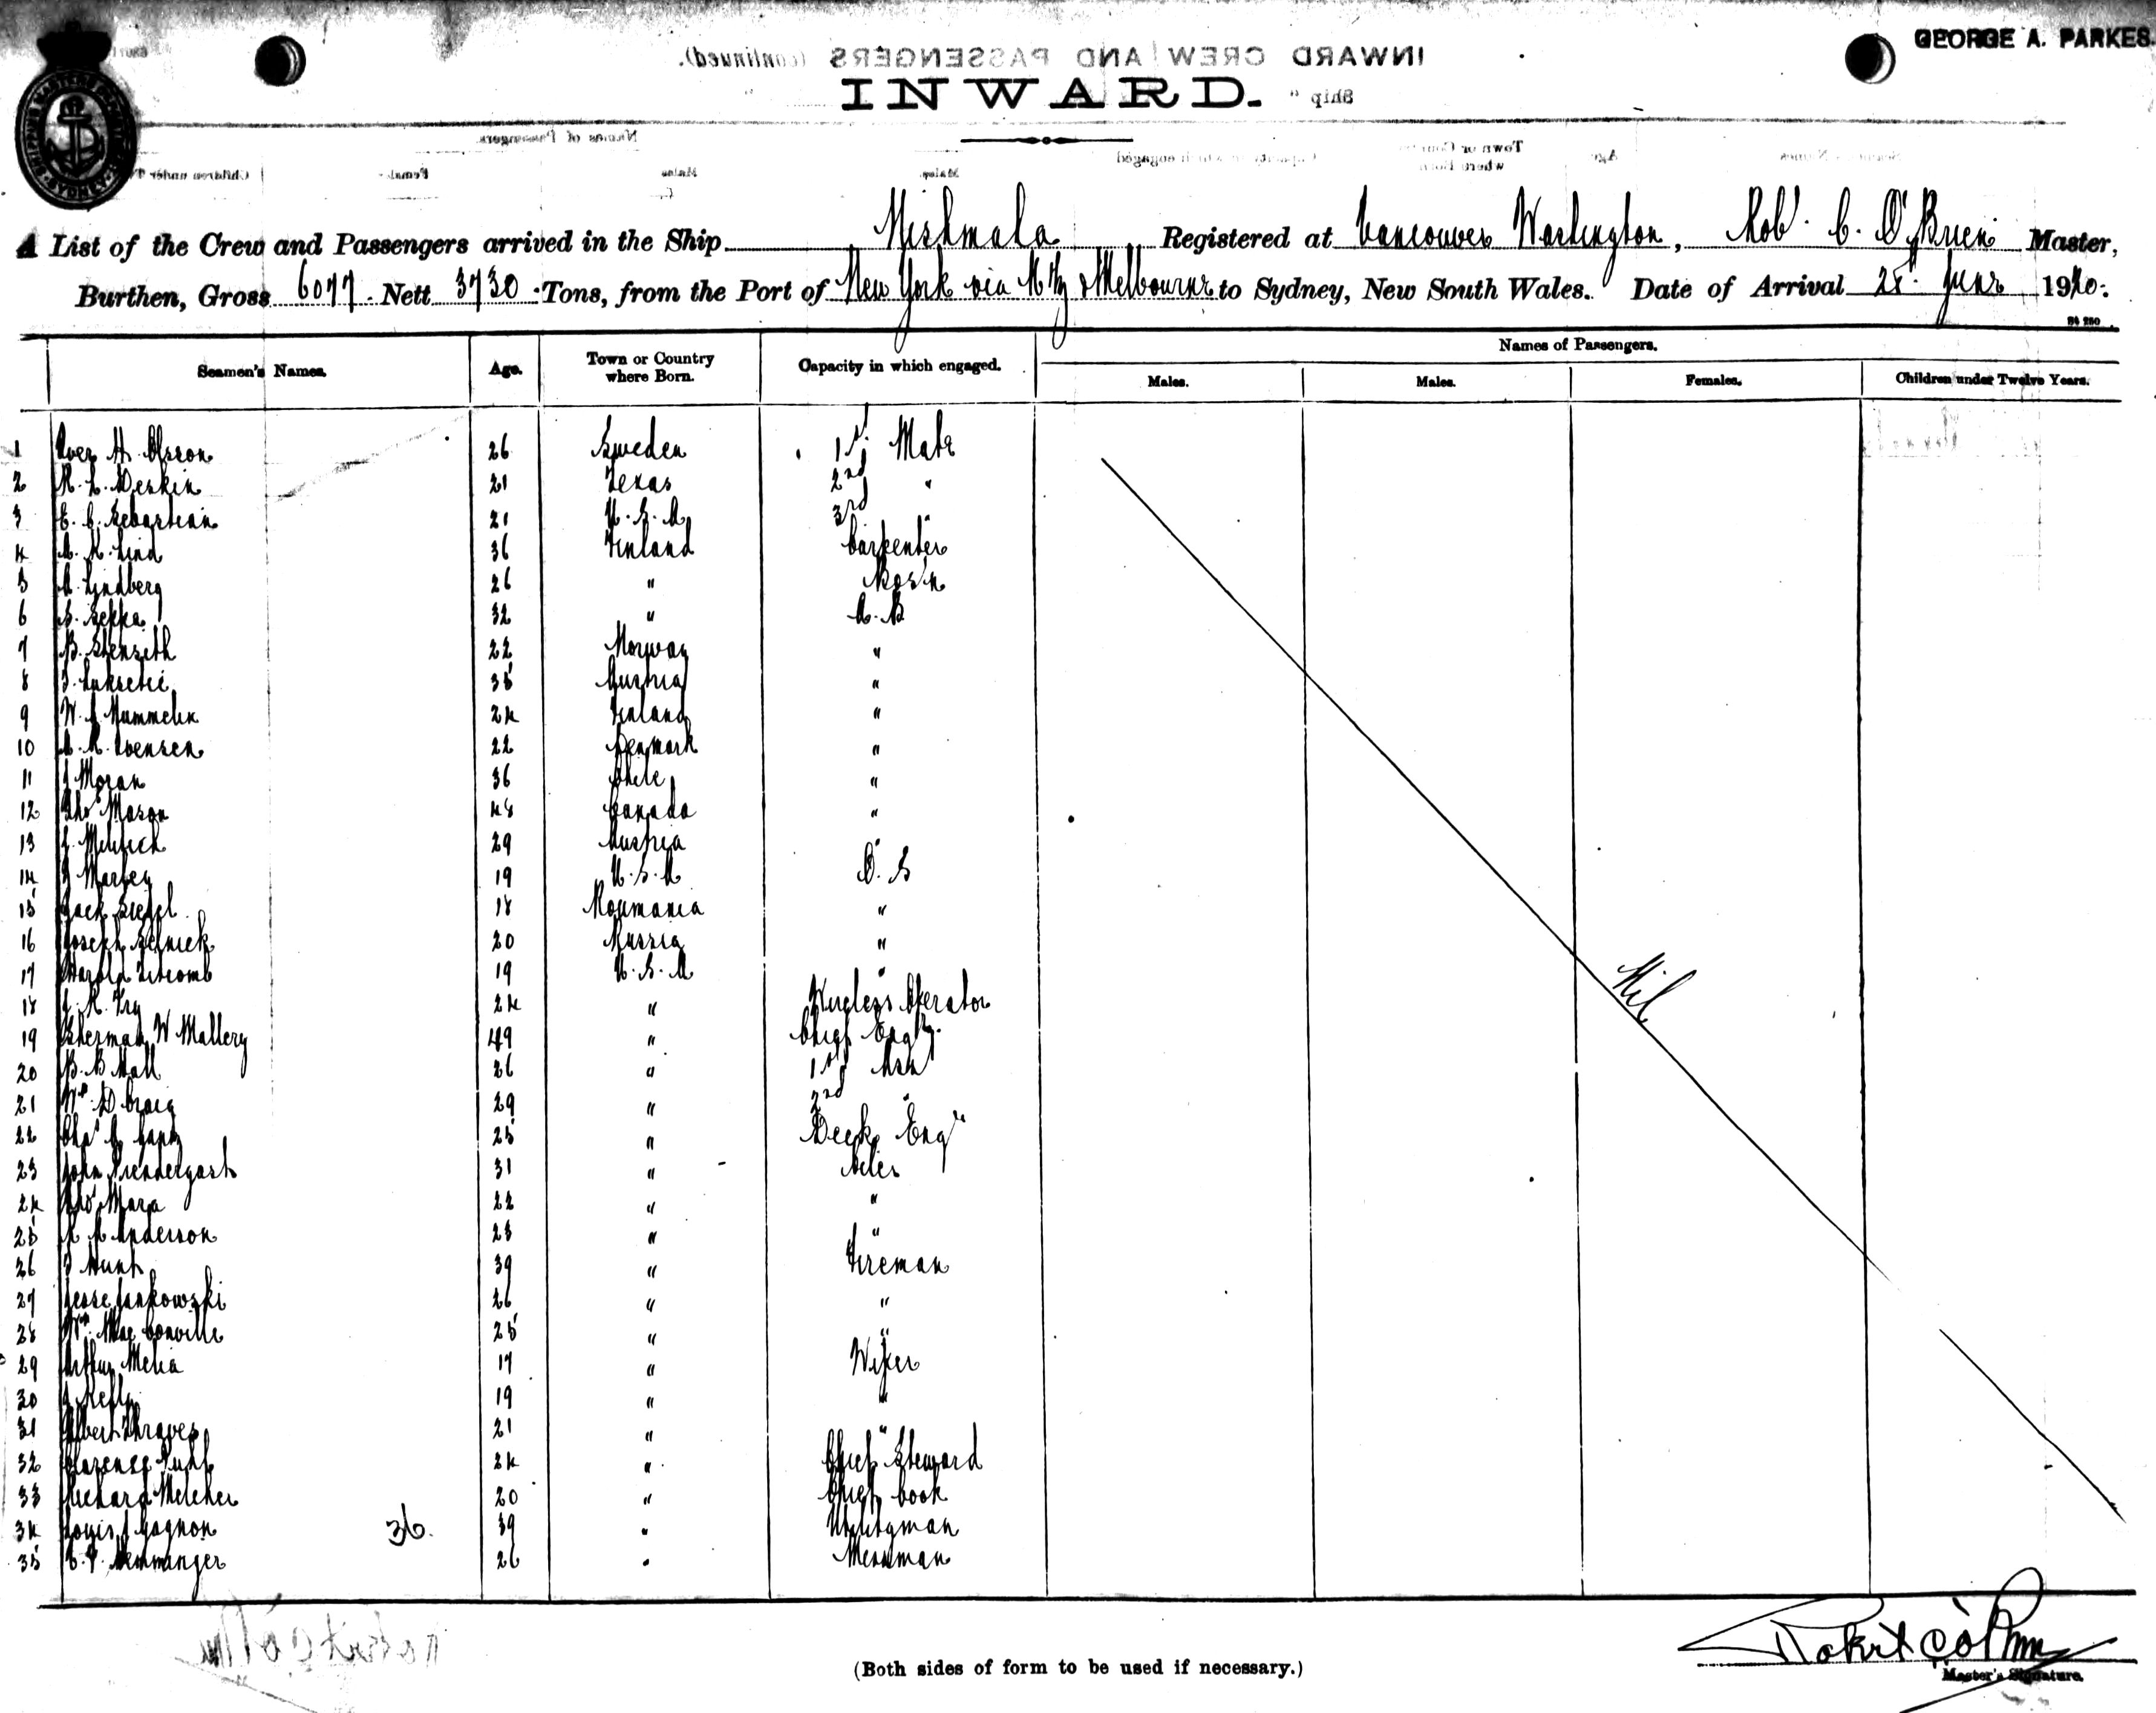 GEORGE A. PARKES.
INWARD CREW AND PASSENGERS (continued).
INWARD.
Ship "
A List of the Crew and Passengers arrived in the Ship Registered at Vancouver Washington, Robt. C. O'Brien Master,
Burthen, Gross 6077. Nett 3730 Tons, from the Port of New York via & Melbourne to Sydney, New South Wales. Date of Arrival 28. June 1920.
Seamen's Names. Age. Town or Country where Born. Capacity in which engaged. Names of Passengers.
Males. Males. Females. Children under Twelve Years.
1 Iver H. Olsson 26 Sweden 1st. Mate
2 R. L. Deskin 21 Texas 2nd "
3 E. C. Sebastian 21 U.S.A. 3rd "
4 A. R. Lind 36 Finland Carpenter
5 A. Lindberg 26 " Bos'n
6 Sepka 32 " A.B
7 B. Stenseth 22 Norway "
8 35 Austria "
9 W. J. Nummelin 24 Finland "
10 A. R. Svensen 22 Denmark "
11 J Moran 36 Chile "
12 Thos Mason 48 Canada "
13 29 Austria "
14 J Morley 19 U.S.A O.S
15 Jack Siegel 18 Roumania "
16 Joseph Selnick 20 Russia "
17 Harold Titcomb 19 U.S.A "
18 J. R. Fry 24 " Wireless Operator
19 Sherman W Mallery 49 " Chief Engr.
20 B. B Hall 26 " 1st Asst
21 Wm. D Craig 29 " 2nd "
22 Chas 25 " Deck Engr
23 John Prendergast 31 " Oiler
24 Thos Mara 22 " "
25 R A Anderson 23 " "
26 J Hunt 39 " Fireman
27 Jesse Jankowski 26 " "
28 Wm. Mac Conville 25 " "
29 Arthur Melia 17 " Wiper
30 J Kelly 19 " "
31 Albert Thraves 21 " "
32 Clarence 24 " Chief Steward
33 Richard Melcher 20 " Chief Cook
34 Louis J Gagnon 39 " Utilityman
35 Hemminger 26 " Messman
36.
Nil
(Both sides of form to be used if necessary.)
Robert C O'Brien
Master's Signature.